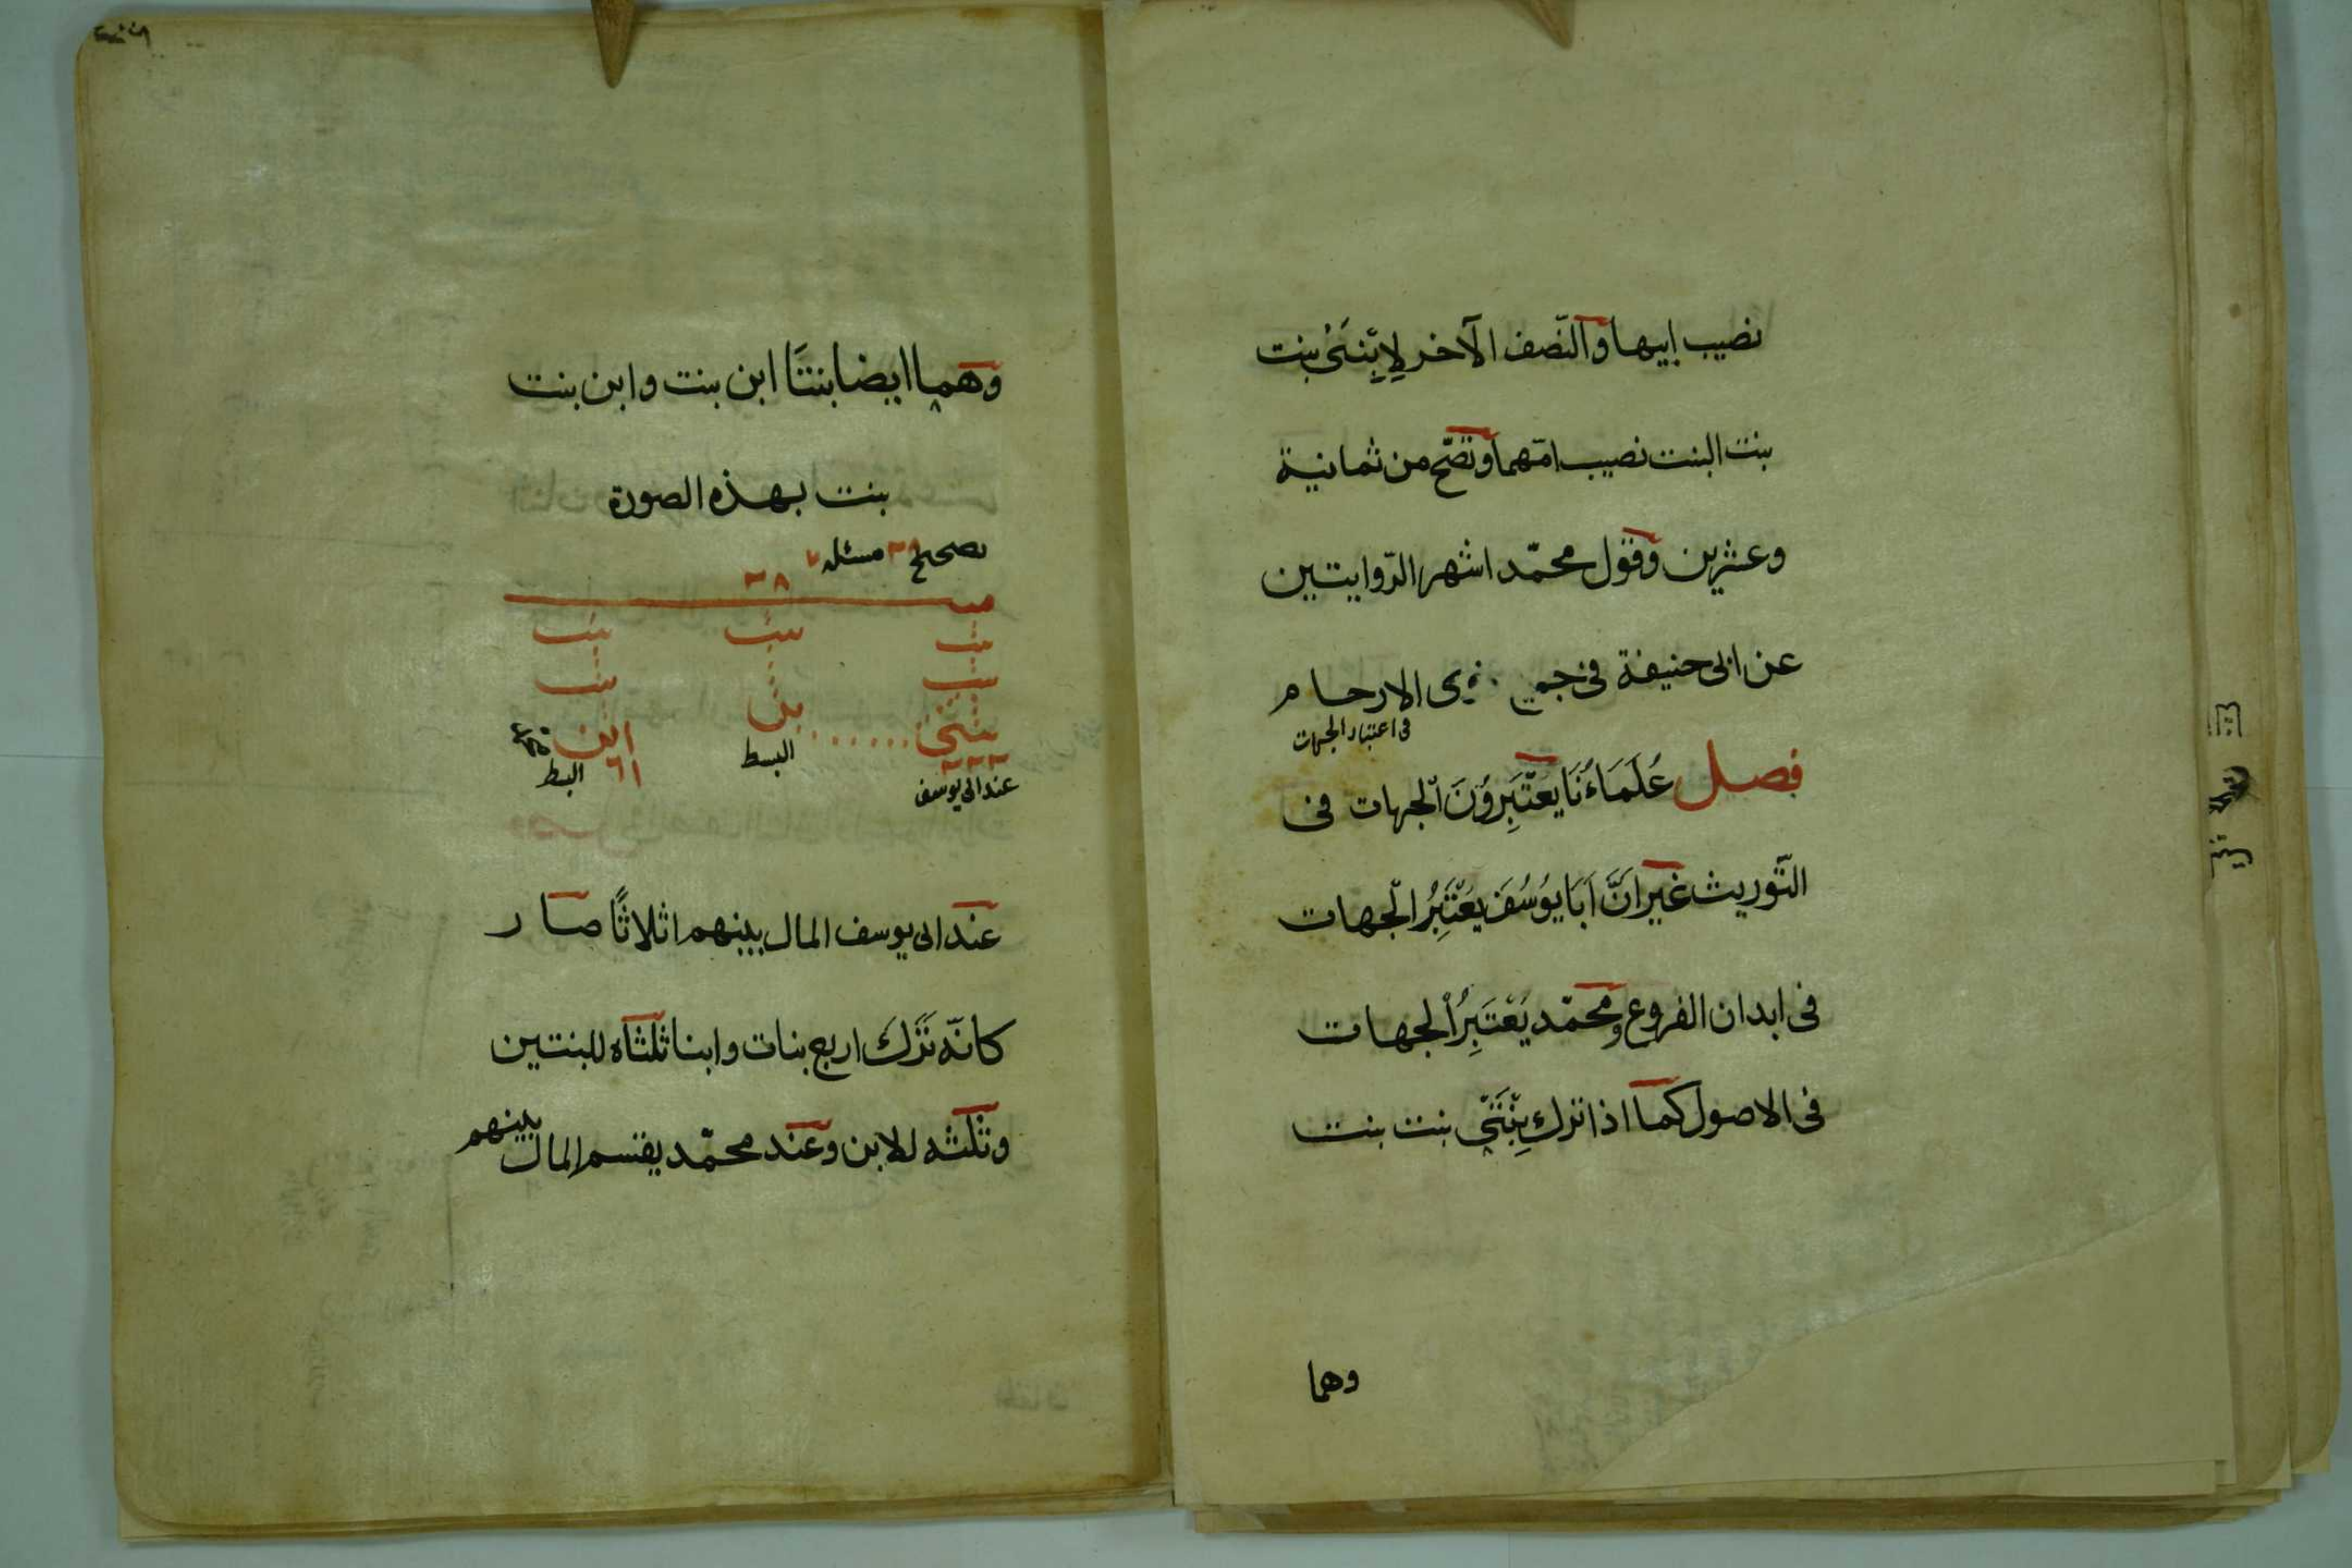 نصيب ابيها والنّصف الآخر لِابْنَتَىْ بنت
بنت البنت نصيب امّهما وتصّح من ثمانية
وعشرين وقول محمّد اشهر الرّوايتين
عن ابى حنيفة فى جميع ذوى الارحام
فى اعتبار الجهات
فصل عُلَمَاءُنَا يَعْتَبِرُوْنَ الْجهات فى
التّوريث غير انَّ اَبَا يوُسُفَ يَعْتَبِرُ الْجهات
فى ابدان الفروع ومحمّد يَعْتَبِرُ الْجهات
فى الاصول كما اذا ترك بِنْتَىْ بنت بنت
وهما
وهما ايضا بنتَا ابن بنت وابن بنت
بنت بهذه الصورة
تصحيح ٢٨ مسئله ٧
٢٨
ميت
بنت بنت بنت
بنت ابن بنت
بنتى ابن
٢٢ ٦
عند ابى يوسف
عند ابى يوسف المال بينهم اثلاثًا صار
كانّه تَرَكَ اربع بنات وابنا ثلثاه للبنتين
وثلثه للابن وعند محمّد يقسم المال بينهم